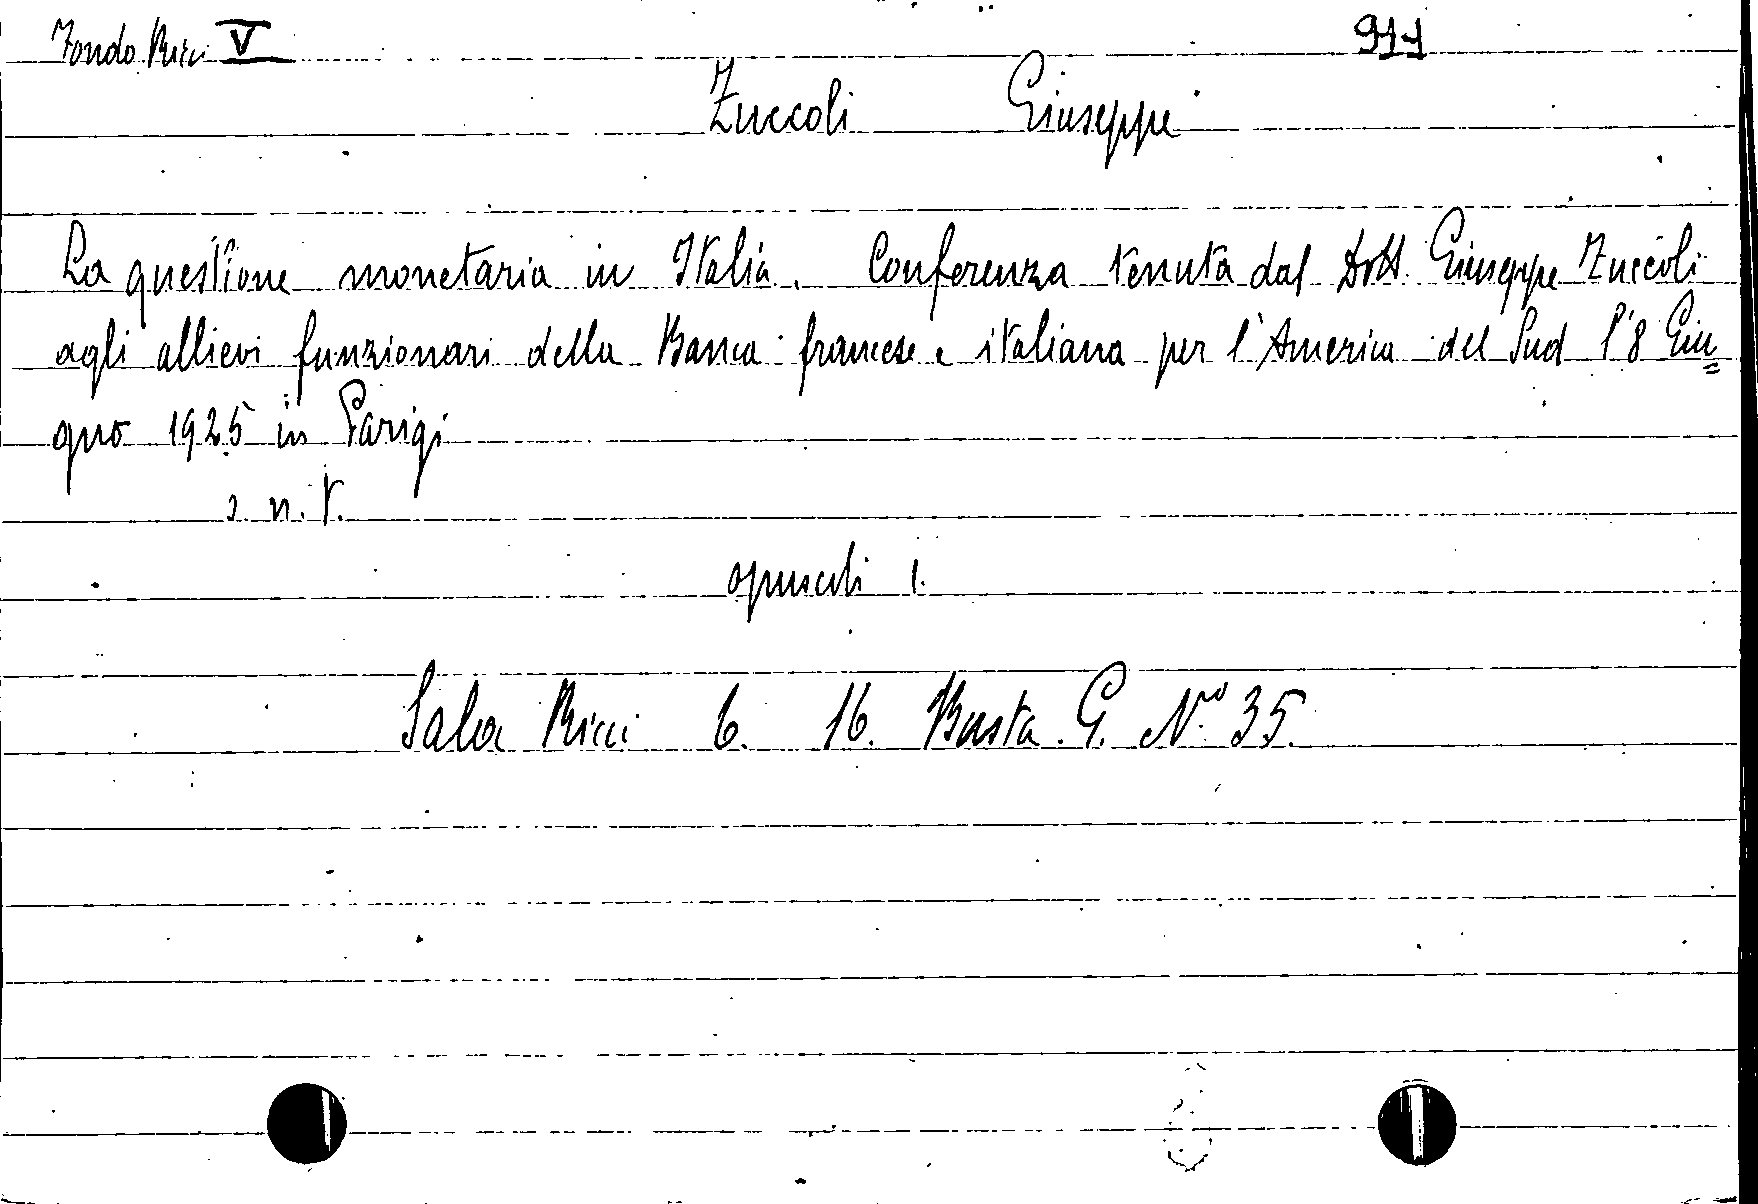 Fondo Ricci V 977
Zuccoli Giuseppe
La questione monetaria in Italia. Conferenza tenuta dal Dott. Giuseppe Zuccoli
agli allievi funzionari della Banca francese e italiana per l'America del Sud l'8 Giu=
gno 1925 in Parigi
s. n. t.
opuscoli 1.
Sala Ricci 6. 16. Busta G. N.º 35.